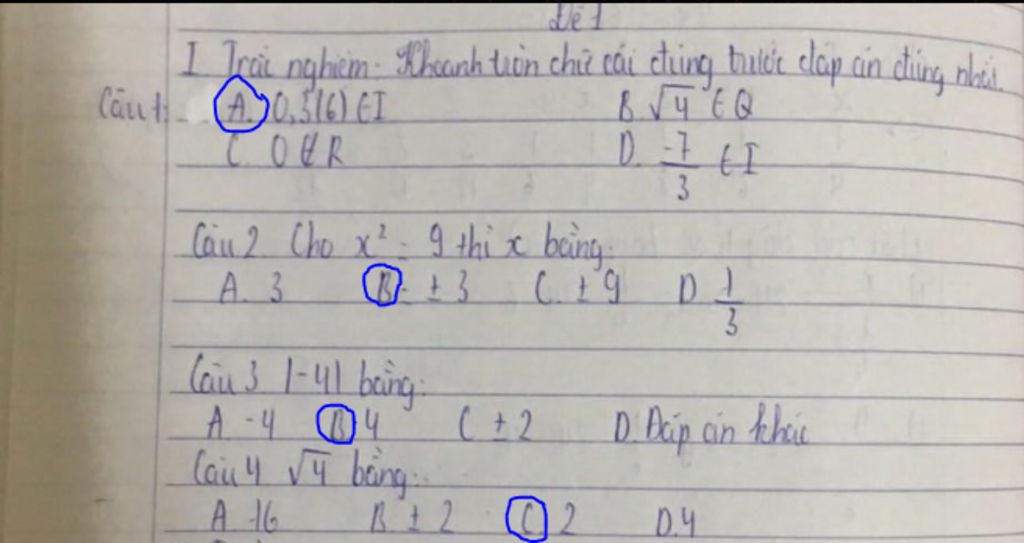 Đề 1
I Trắc nghiệm: Khoanh tròn chữ cái đứng trước đáp án đúng nhất.
Câu 1: A. 0,5(6) ∈ I B. √4 ∈ Q
C. 0 ∉ R D. -7/3 ∈ I
Câu 2 Cho x² = 9 thì x bằng:
A. 3 B. ± 3 C. ± 9 D. 1/3
Câu 3 |-4| bằng:
A -4 B 4 C ± 2 D. Đáp án khác
Câu 4 √4 bằng:
A -16 B ± 2 C 2 D. 4